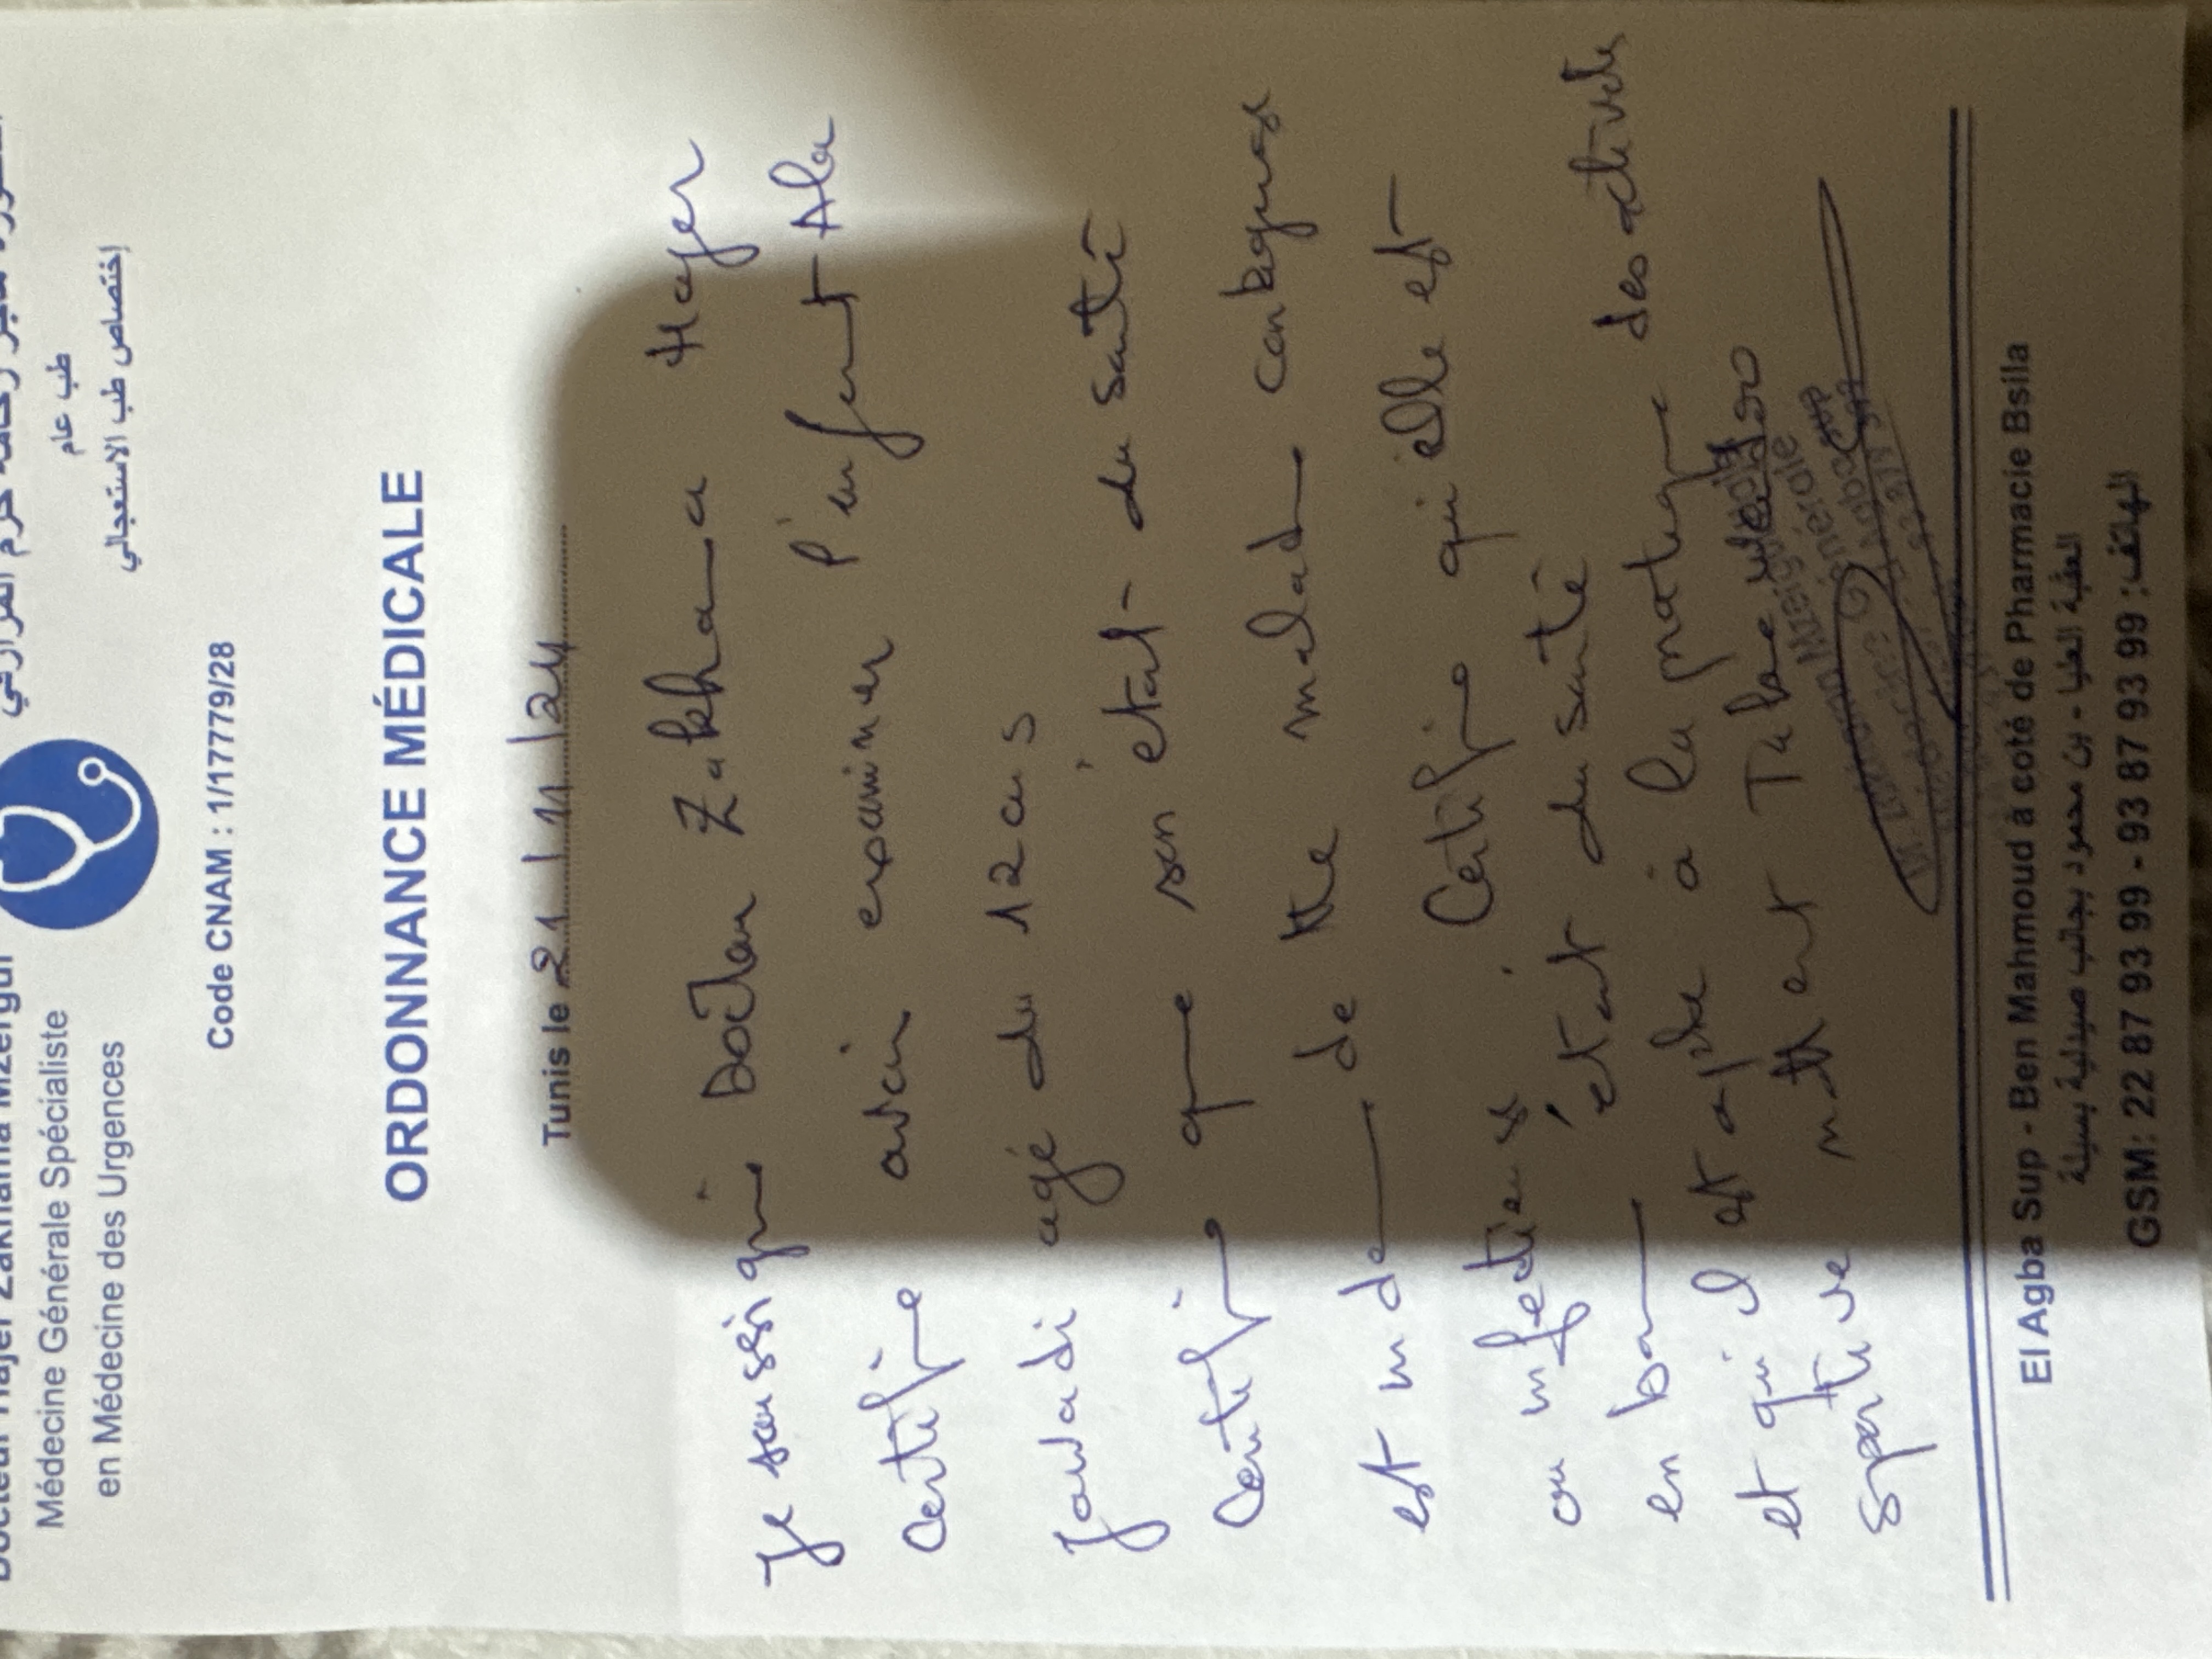 Docteur Hajer Zakhama Mzergui
Médecine Générale Spécialiste
en Médecine des Urgences
طب عام
إختصاص طب الاستعجالي
Code CNAM : 1/17779/28
ORDONNANCE MÉDICALE
Tunis le 21/11/24
Je soussigné Docteur Zakhama Hajer
Certifie avoir examiner l'enfant Ala
Jouadi agé du 12 ans
Certifie que son état du santé
est inde de tte maladie contagieuse
ou infectieuse. Certifie qu'elle est
en bonne état du santé
et qu'il est apte à la pratique des activités
sportive
El Agba Sup - Ben Mahmoud à coté de Pharmacie Bsila
العقبة العليا - بن محمود بجانب صيدلية بسيلة
GSM: 22 87 93 99 - 93 87 93 99 :الهاتف